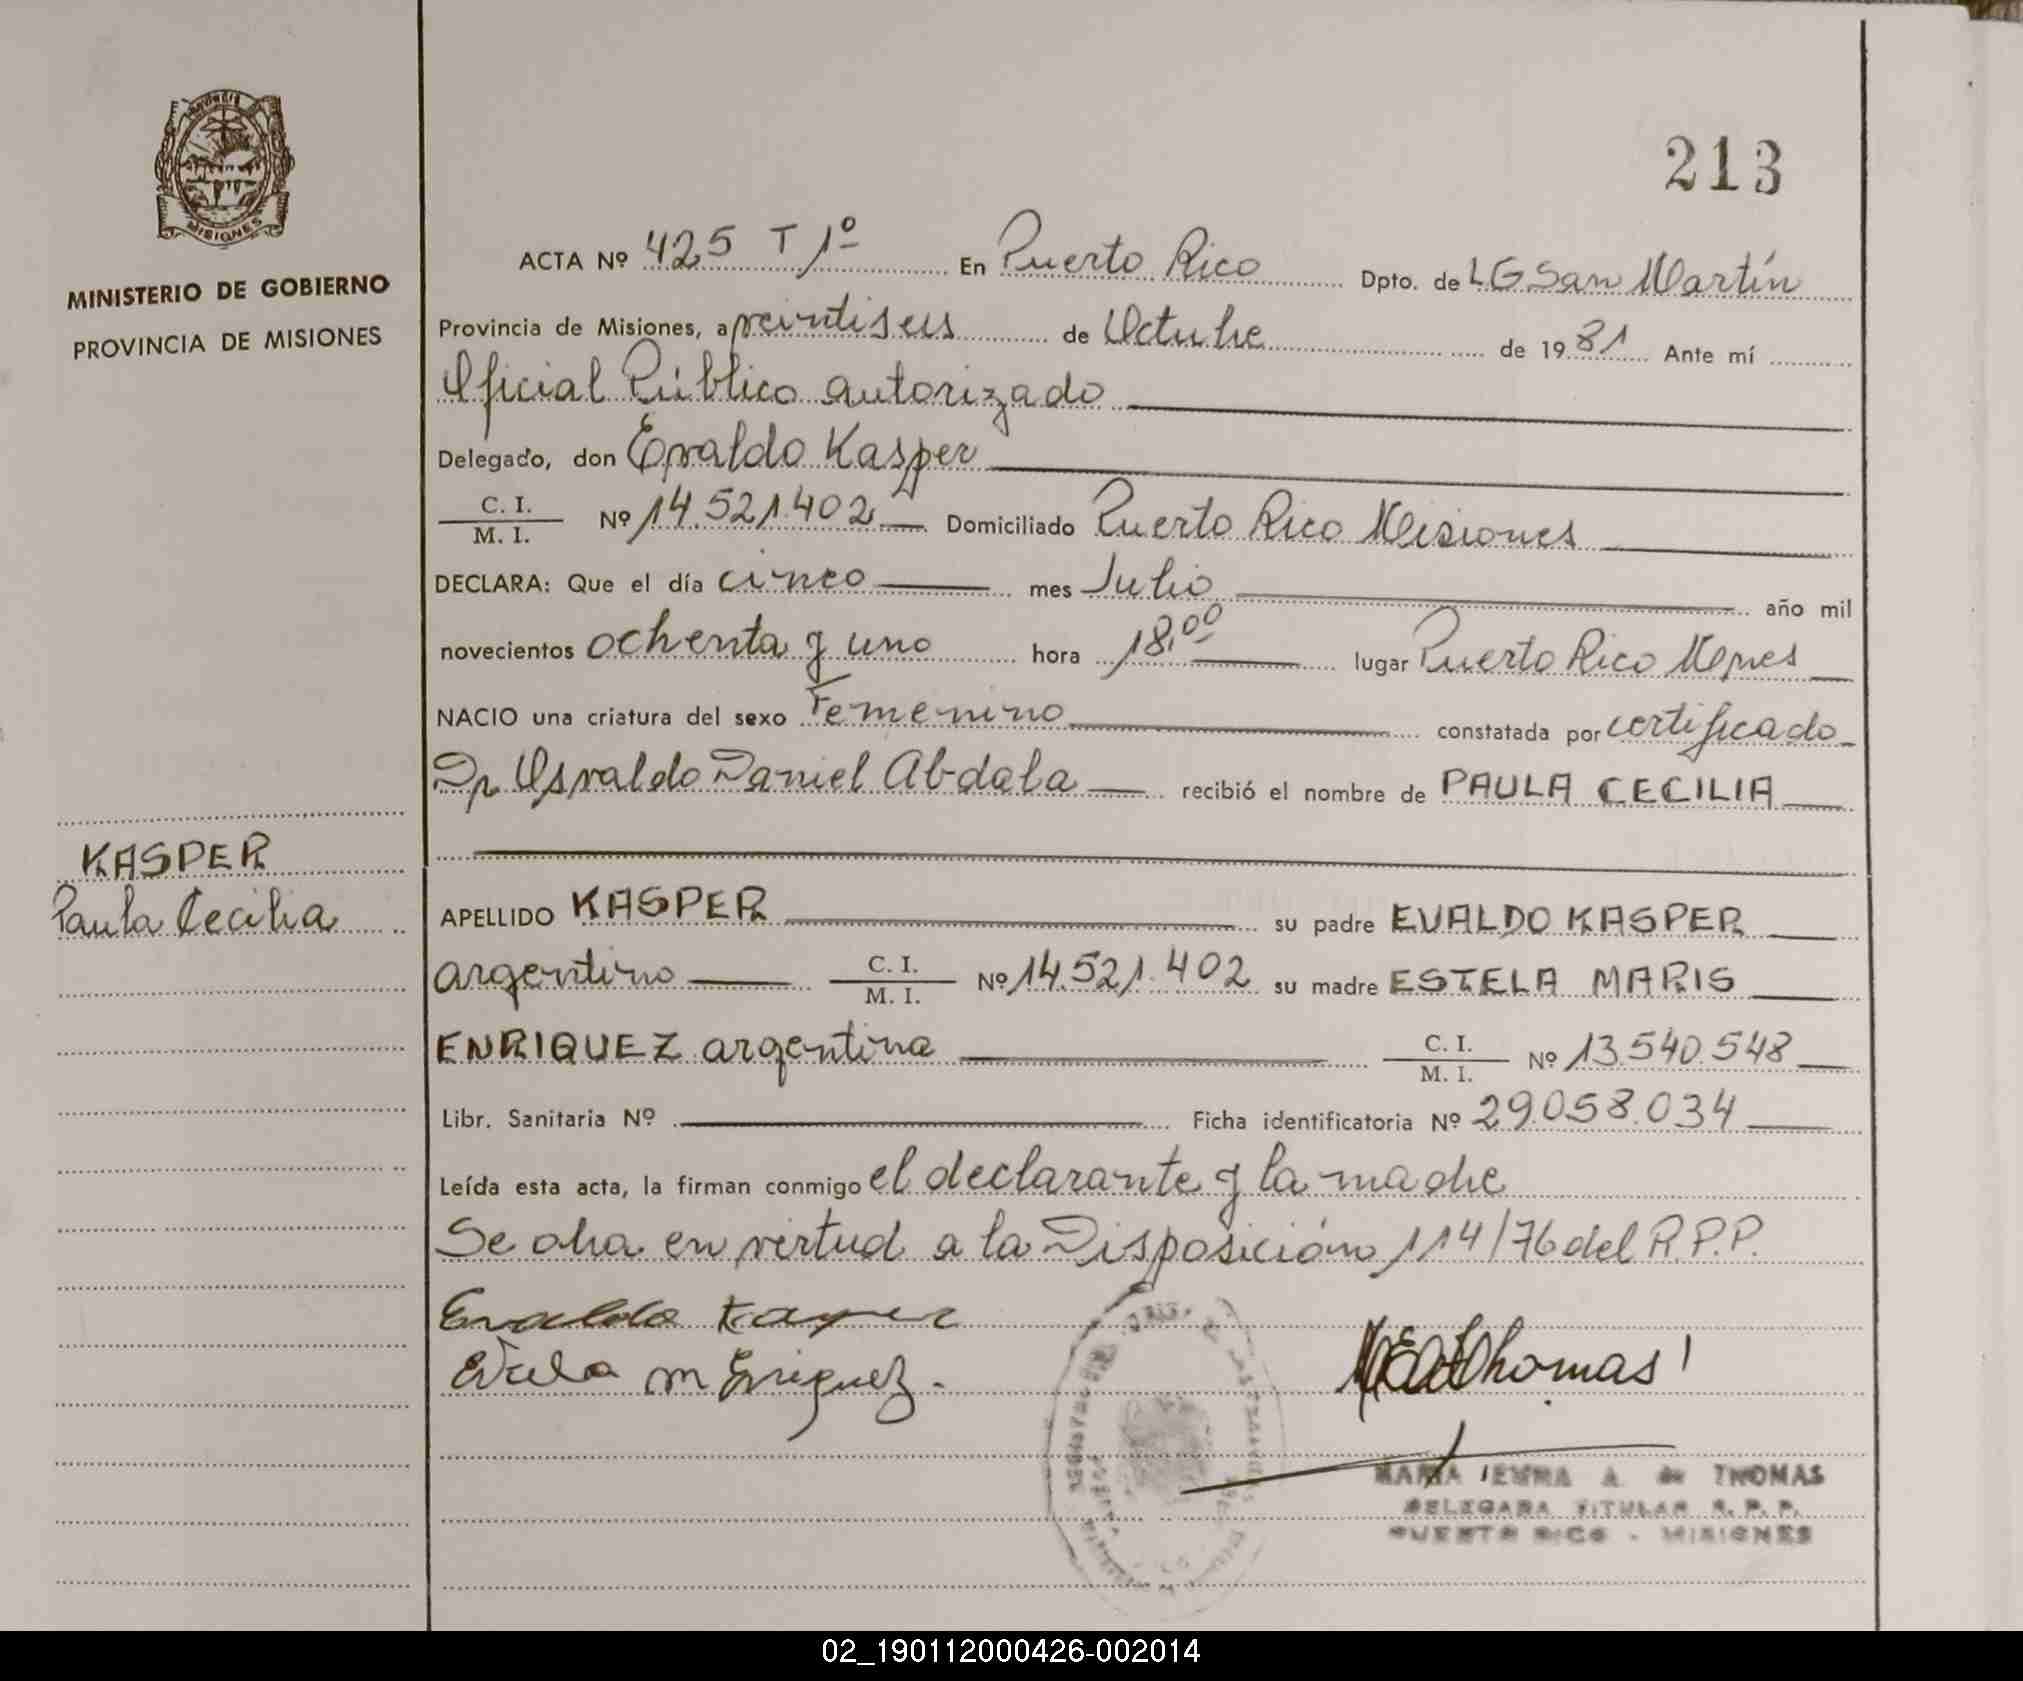 213
MISIONES
MINISTERIO DE GOBIERNO
PROVINCIA DE MISIONES
KASPER
Paula Cecilia
ACTA Nº 425 T 1º En Puerto Rico Dpto. de LG San Martín
Provincia de Misiones, a veintiseis de Octubre de 1981 Ante mí
Oficial Público autorizado
Delegado, don Evaldo Kasper
C. I.
M. I. Nº 14.521.402 Domiciliado Puerto Rico Misiones
DECLARA: Que el día cinco mes Julio año mil
novecientos ochenta y uno hora 18,00 lugar Puerto Rico Mnes
NACIO una criatura del sexo Femenino constatada por certificado
Dr Osvaldo Daniel Abdala recibió el nombre de PAULA CECILIA
APELLIDO KASPER su padre EVALDO KASPER
argentino C. I. M. I. Nº 14.521.402 su madre ESTELA MARIS
ENRIQUEZ argentina C. I. M. I. Nº 13.540.548
Libr. Sanitaria Nº Ficha identificatoria Nº 29.058.034
Leída esta acta, la firman conmigo el declarante y la madre
Se obra en virtud a la Disposición 114/76 del R.P.P.
Evaldo Kasper
Estela M Enriquez.
Thomas
MARIA EMMA A. de THOMAS
DELEGADA TITULAR R. P. P.
PUERTO RICO - MISIONES
02_190112000426-002014